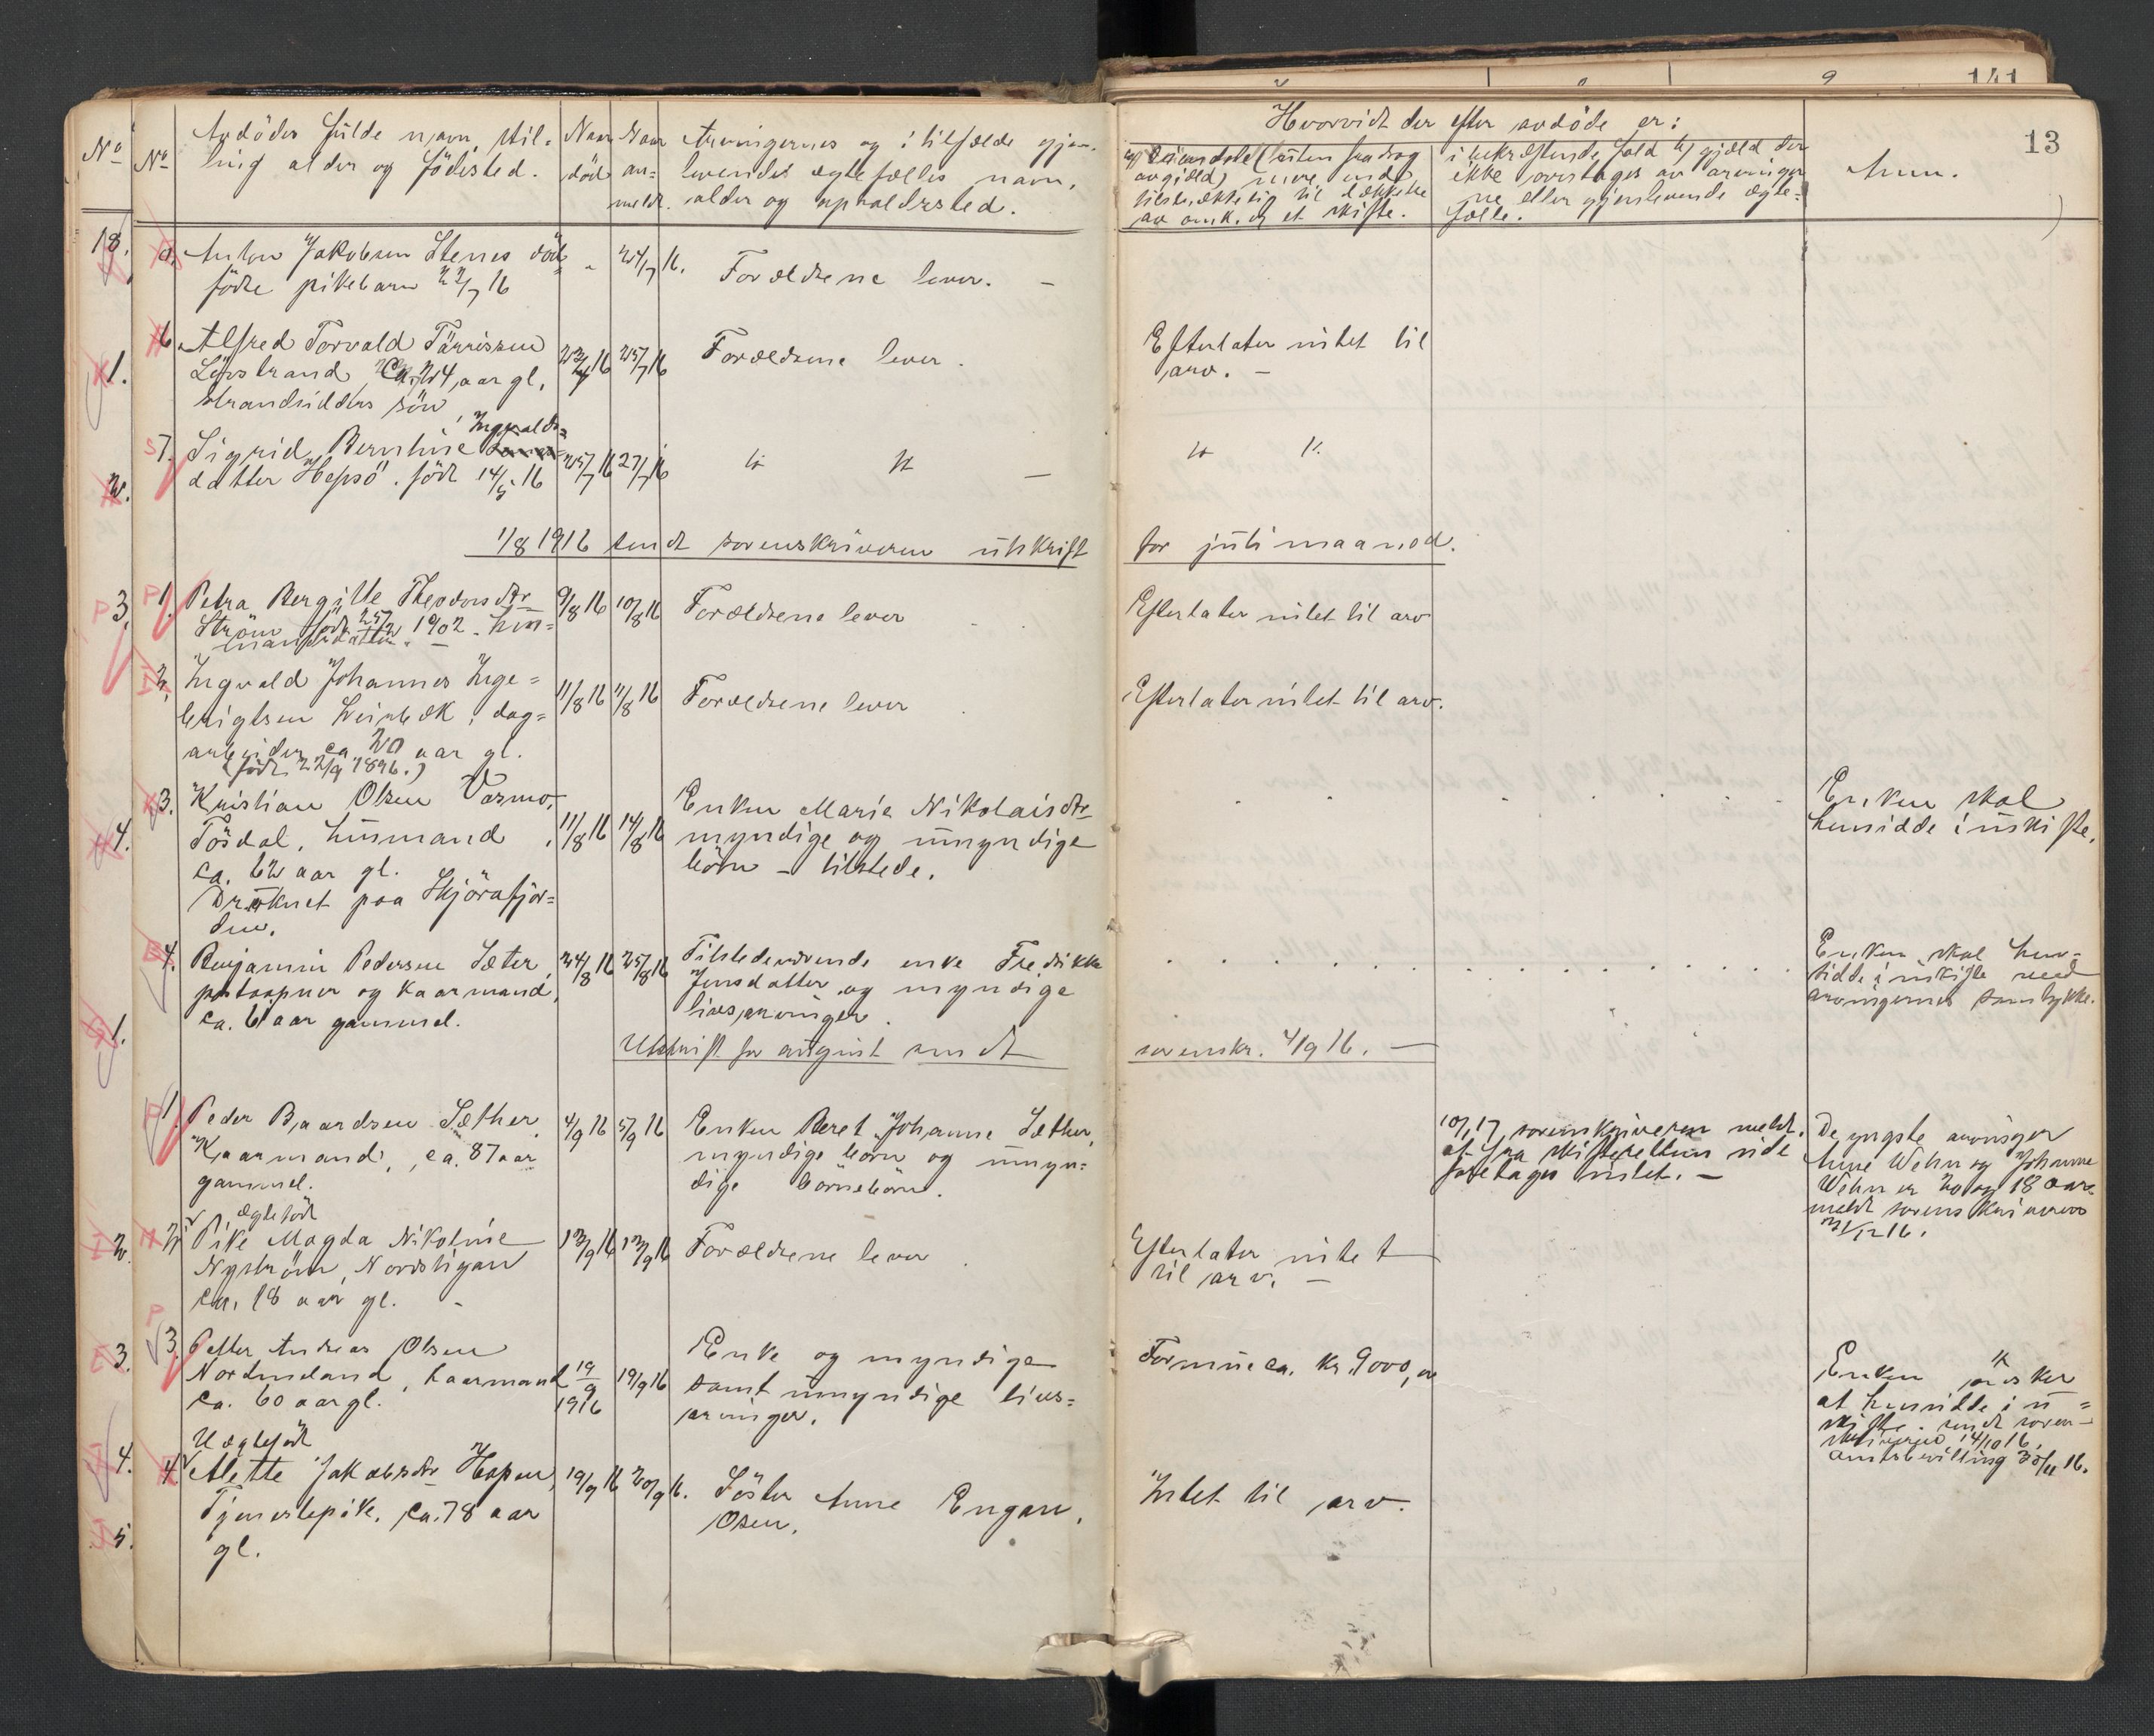 141
13
No
No
Avdödes fulde navn, stil-
ling alder og födested.
Naar
död
Naar
an-
meldt.
Arvingernes og i tilfælde gjen-
levendes ægtefælles navn,
alder og opholdssted.
Hvorvidt der efter avdöde er:
a) Eiendele (uten fradrag
av gjæld) mere end
tilstrækkelig til dækkelse
av omk. ved et skifte.
i bekræftende fald b) gjæld der
ikke overtages av arvinger
ne eller gjenlevende ægte-
fælle.
Anm.
18.
Anton Jakobsen Stenes död
födte pikebarn 22/7 16
24/7 16.
Forældrene lever. -
1.
6. Alfred Torvald Tärrissen
Lövstrand, Ca. 24 aar gl.
strandsidders sön
23/7 16
25/7 16
Forældrene lever.
Efterlater intet til
arv. -
2.
7. Sigrid Berntine Ingvalds-
datter Hepsö. född 14/5 16
25/7 16
27/7 16
1/8 1916 sendt sorenskriveren utskrift
for juli maaned.
3.
1. Petra Bergitte Theodorsdtr
Ström född 25/2 1902. hus-
mandsdatter. -
9/8 16
10/8 16
Forældrene lever
Efterlater intet til arv
2. Ingvald Johannes Inge-
brigtsen Sveinbæk, dag-
arbeider ca 20 aar gl.
(född 22/9 1896.)
11/8 16
11/8 16
Forældrene lever
Efterlater intet til arv.
4.
3. Kristian Olsen Varmo,
Tösdal, husmand
ca. 62 aar gl.
Druknet paa Skjörafjor-
den.
11/8 16
14/8 16
Enken Marie Nikolaisdtr
myndige og umyndige
börn - tilstede.
Enken skal
hensidde i uskifte.
4. Benjamin Pedersen Sæter,
postaapner og kaarmand,
ca. 61 aar gammel.
24/8 16
25/8 16
Tilstedeværende enke Fredrikke
Jensdatter og myndige
livsarvinger.
Enken skal hen-
sidde i uskifte med
arvingernes samtykke.
Utskrift for august sendt
sorenskr. 4/9 16. -
1.
1. Peder Baardsen Sæther,
Kaarmand, ca. 87 aar
gammel.
4/9 16
5/9 16
Enken Beret Johanne Sæther,
myndige börn og umyn-
dige börnebörn.
10/1 17 sorenskriveren meldt.
at fra skifterettens side
foretages intet. -
De yngste arvinger
Anne Wehn og Johanne
Wehn er 20 og 18 aar.
meldt sorenskriveren
21/12 16.
2.
2. ægtefödt
Pike Magda Nikoline
Nyström, Nordstigan
ca. 18 aar gl. -
13/9 16
13/9 16
Forældrene lever
Efterlater intet
til arv. -
3.
3. Petter Andreas Olsen
Nordmeland, kaarmand
ca. 60 aar gl.
19/9
1916
19/9 16
Enke og myndige
samt umyndige livs-
arvinger.
Formue ca. kr. 9000,00
Enken önsker
at hensidde i u-
skifte. sendt soren-
skriveren 14/10 16.
amtsbevilling 30/11 16.
4.
Uægtefödt
4. Alette Jakobsdtr Hopen,
Tjenestepike, ca. 78 aar
gl.
19/9 16
20/9 16.
Söster Anne Engan,
Osen.
Intet til arv.
5.